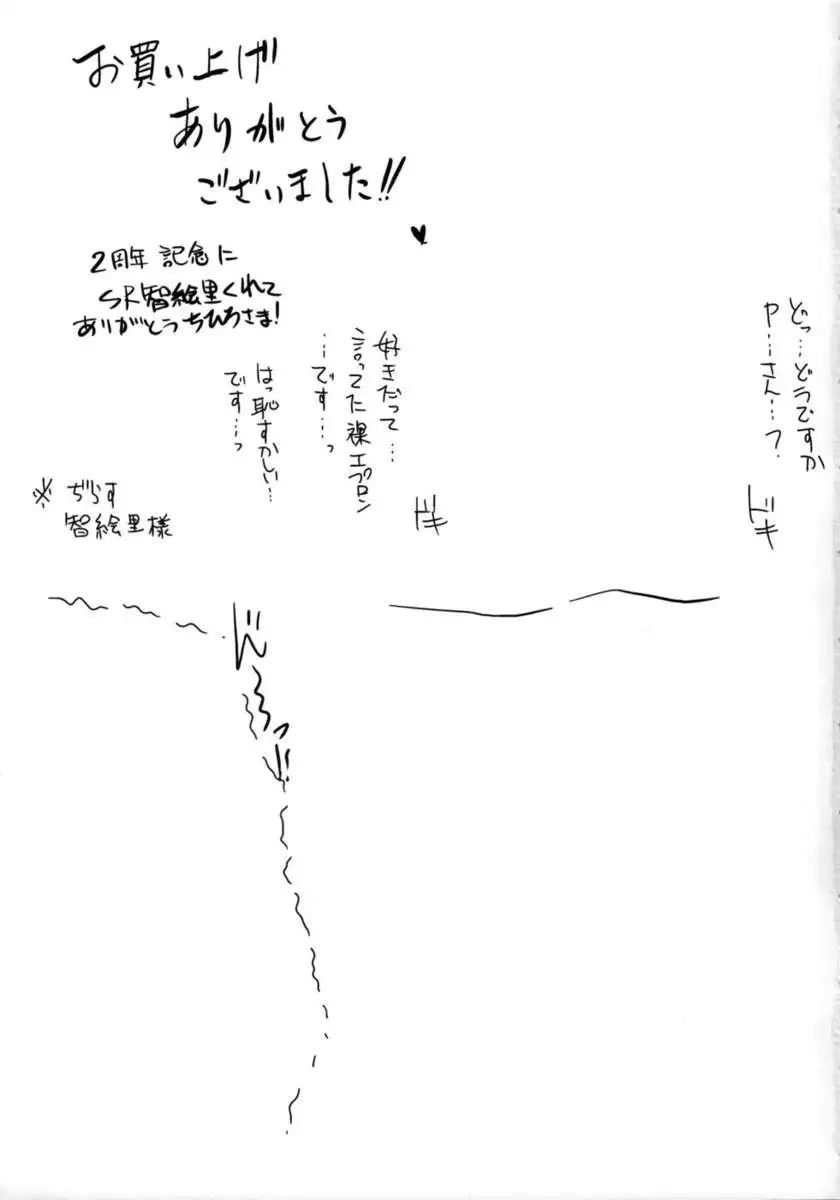 お買い上げ
ありがとう
ございました!!
2周年 記念に
SR智絵里くれて
ありがとうちひろさま!
どっ…どうですか
P…さん…?
ドキ
好きだって…
言ってた裸エプロン
…です…っ
はっ恥すかしい…
です…っ
ドキ
※
智絵里様